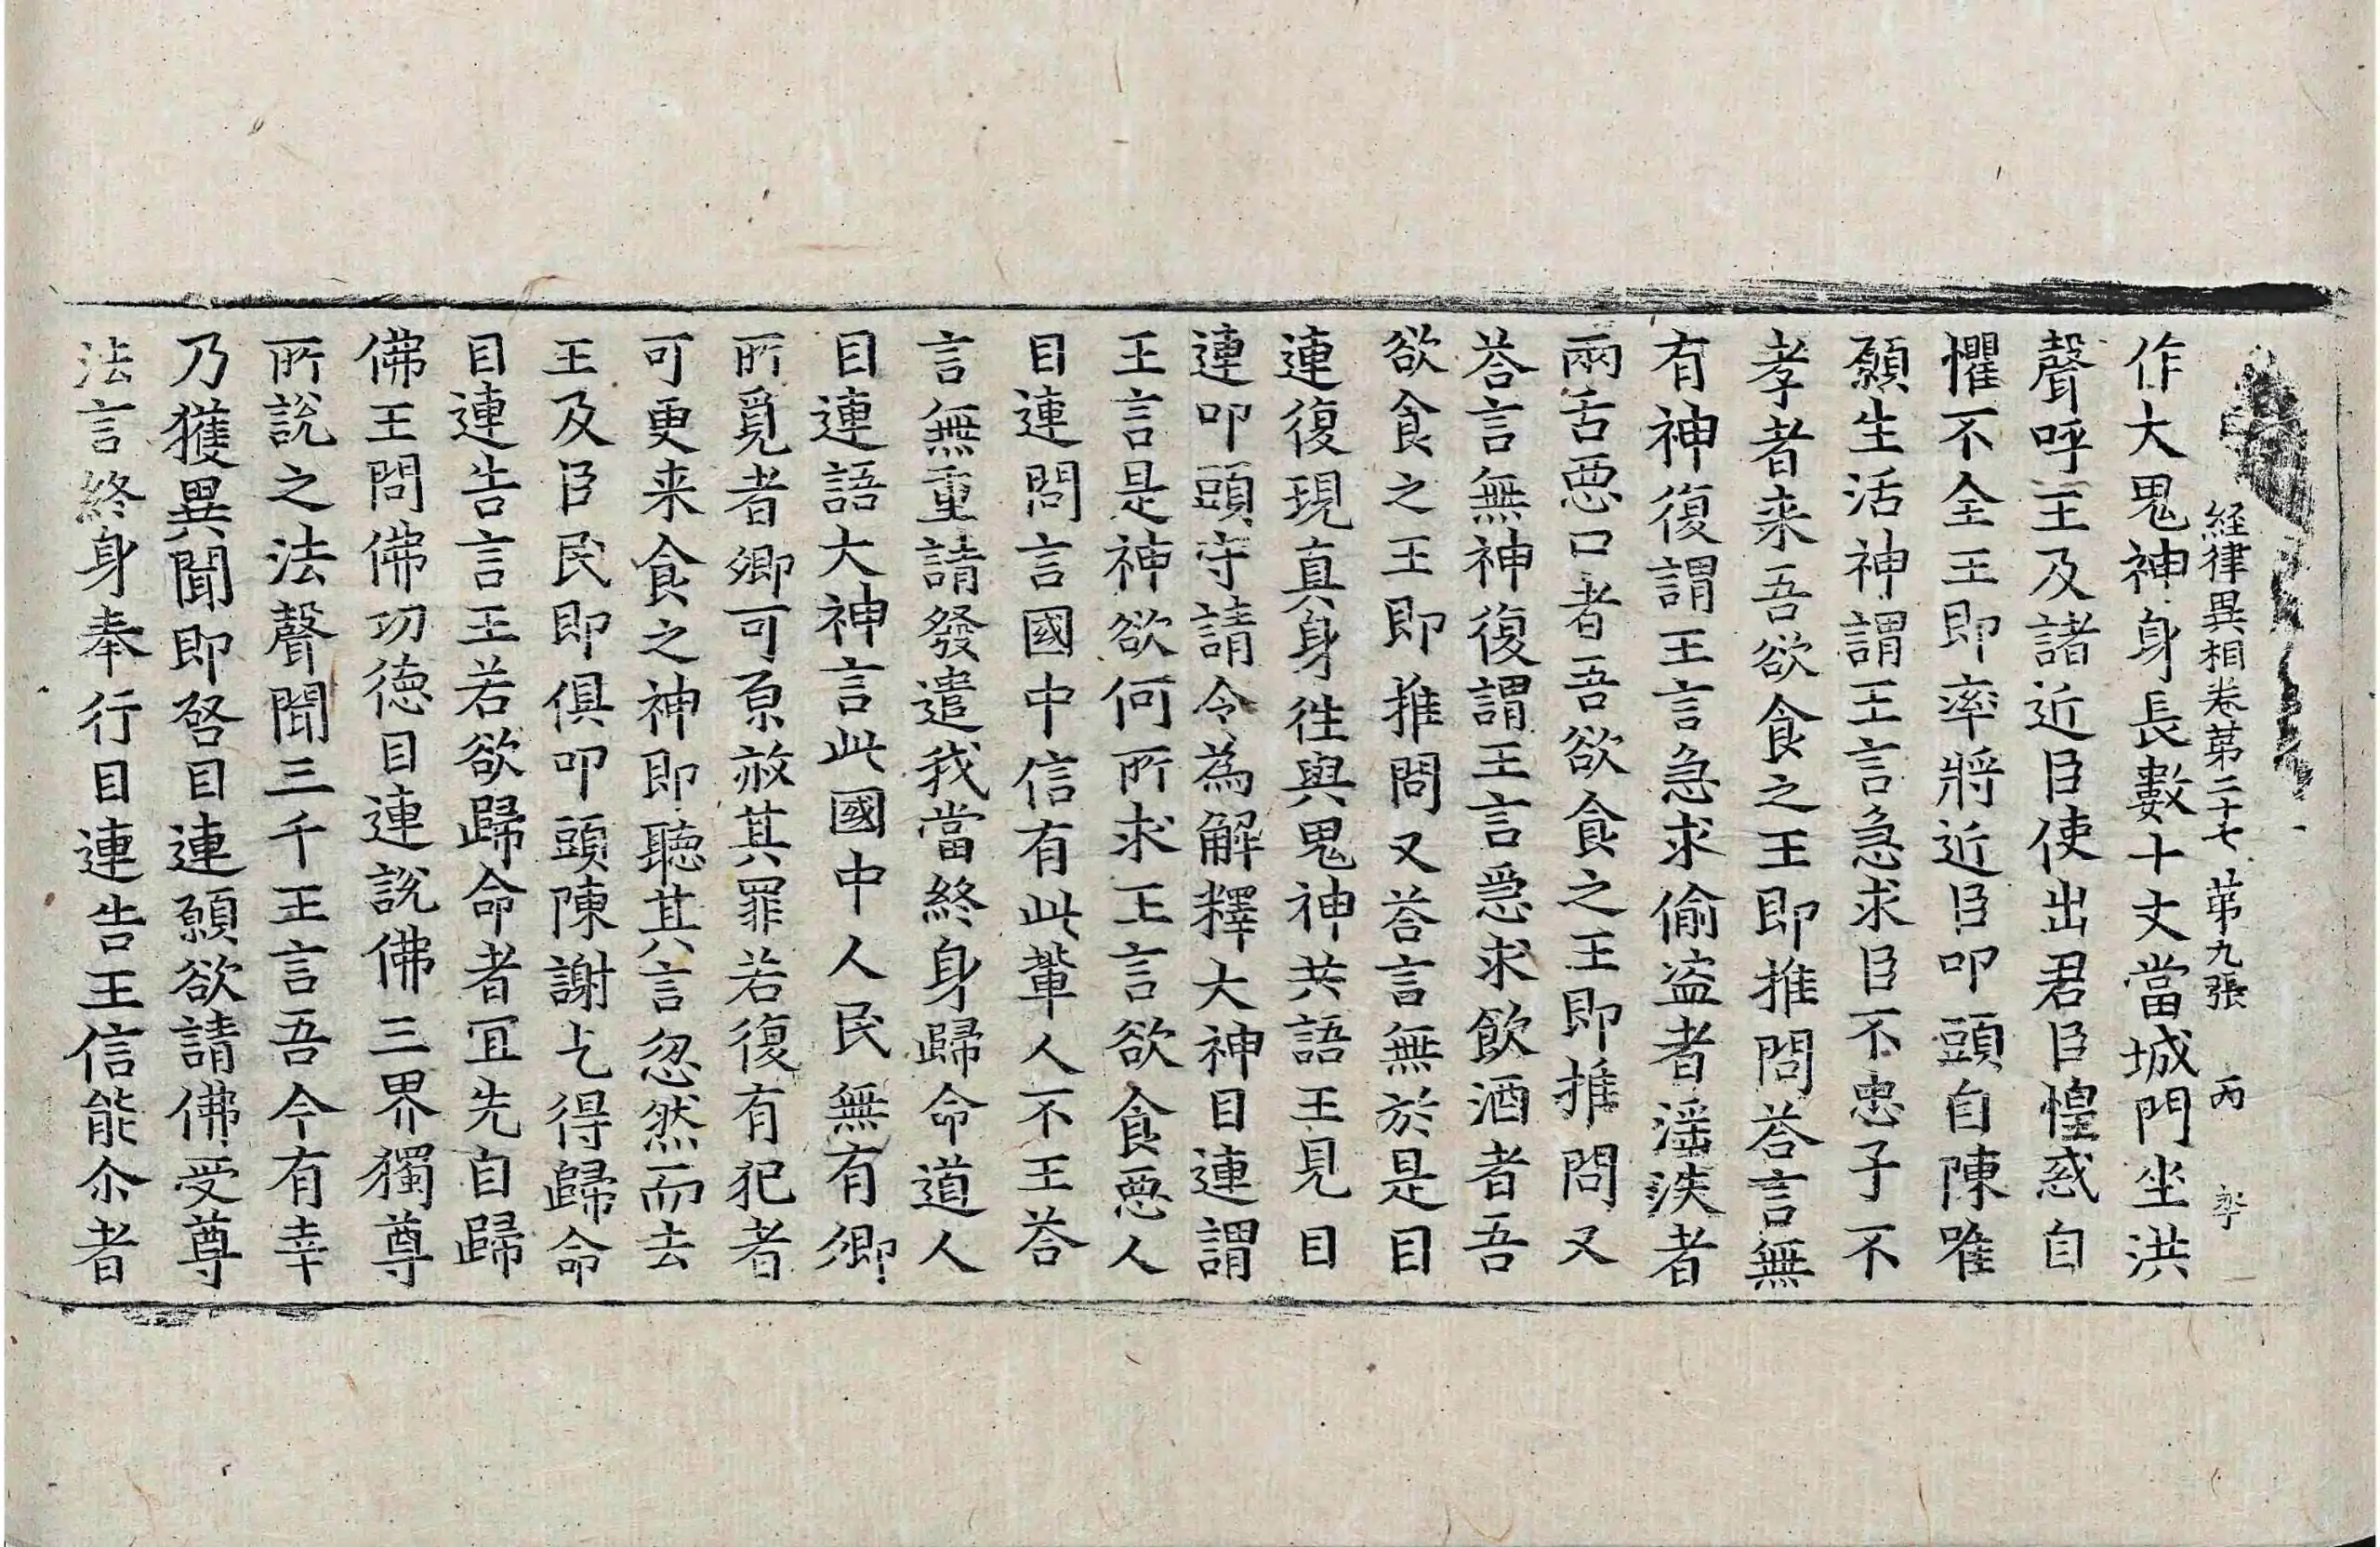 経律異相卷苐二十七 苐九張 丙
作大鬼神身長數十丈當城門坐洪
聲呼王及諸近臣使出君臣惶惑自
懼不全王即率將近臣叩頭自陳唯
願生活神謂王言急求臣不忠子不
孝者来吾欲食之王即推問荅言無
有神復謂王言急求偷盗者滛泆者
兩舌惡口者吾欲食之王即推問又
荅言無神復謂王言急求飲酒者吾
欲食之王即推問又荅言無於是目
連復現真身徃與鬼神共語王見目
連叩頭守請令為解釋大神目連謂
王言是神欲何所求王言欲食惡人
目連問言國中信有此軰人不王荅
言無重請發遣我當終身歸命道人
目連語大神言此國中人民無有卿
所覓者卿可原赦其罪若復有犯者
可更来食之神即聽其言忽然而去
王及臣民即俱叩頭陳謝乞得歸命
目連告言王若欲歸命者冝先自歸
佛王問佛功徳目連說佛三界獨尊
所說之法聲聞三千王言吾今有幸
乃獲異聞即啓目連願欲請佛受尊
法言終身奉行目連告王信能尒者